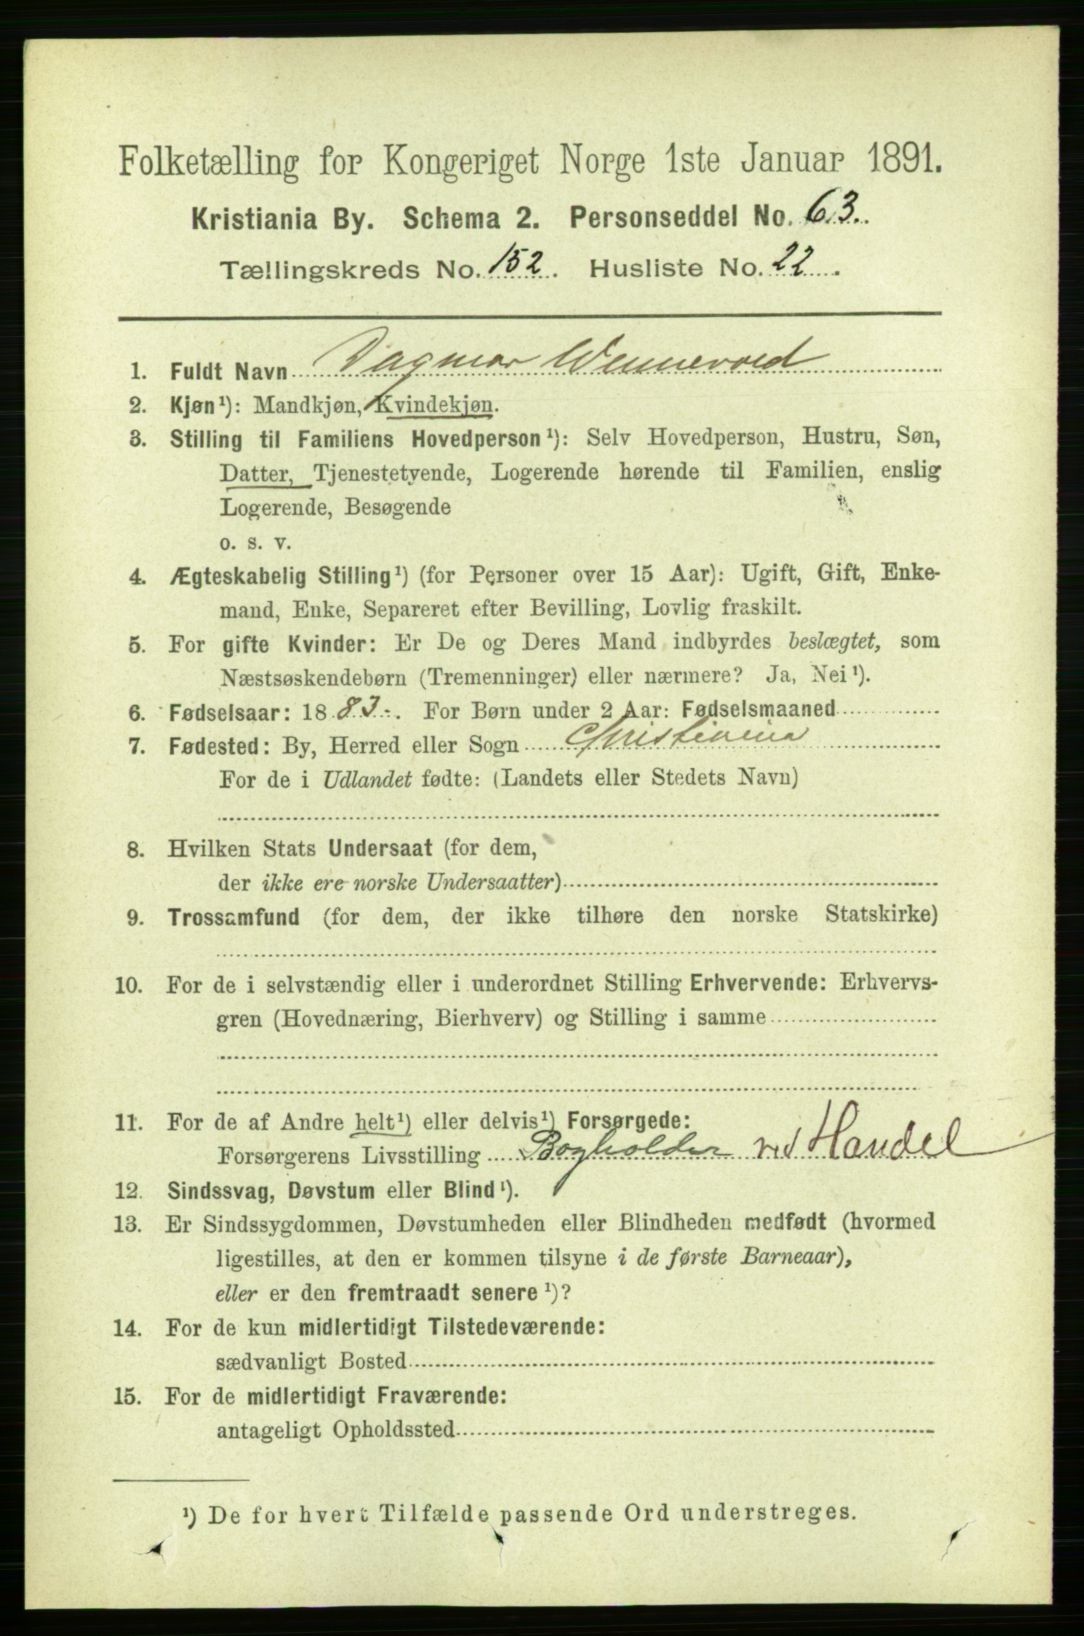 Folketælling for Kongeriget Norge 1ste Januar 1891.
Kristiania By. Schema 2. Personseddel No. 63.
Tællingskreds No. 152. Husliste No. 22.
1. Fuldt Navn Dagmar Wennevold
2. Kjøn¹): Mandkjøn, Kvindekjøn.
3. Stilling til Familiens Hovedperson¹): Selv Hovedperson, Hustru, Søn,
Datter, Tjenestetyende, Logerende hørende til Familien, enslig
Logerende, Besøgende
o. s. v.
4. Ægteskabelig Stilling¹) (for Personer over 15 Aar): Ugift, Gift, Enke-
mand, Enke, Separeret efter Bevilling, Lovlig fraskilt.
5. For gifte Kvinder: Er De og Deres Mand indbyrdes beslægtet, som
Næstsøskendebørn (Tremenninger) eller nærmere? Ja, Nei¹).
6. Fødselsaar: 1883. For Børn under 2 Aar: Fødselsmaaned
7. Fødested: By, Herred eller Sogn Christiania
For de i Udlandet fødte: (Landets eller Stedets Navn)
8. Hvilken Stats Undersaat (for dem,
der ikke ere norske Undersaatter)
9. Trossamfund (for dem, der ikke tilhøre den norske Statskirke)
10. For de i selvstændig eller i underordnet Stilling Erhvervende: Erhvervs-
gren (Hovednæring, Bierhverv) og Stilling i samme
11. For de af Andre helt¹) eller delvis¹) Forsørgede:
Forsørgerens Livsstilling Bogholder ved Handel
12. Sindssvag, Døvstum eller Blind¹).
13. Er Sindssygdommen, Døvstumheden eller Blindheden medfødt (hvormed
ligestilles, at den er kommen tilsyne i de første Barneaar),
eller er den fremtraadt senere¹)?
14. For de kun midlertidigt Tilstedeværende:
sædvanligt Bosted
15. For de midlertidigt Fraværende:
antageligt Opholdssted
¹) De for hvert Tilfælde passende Ord understreges.